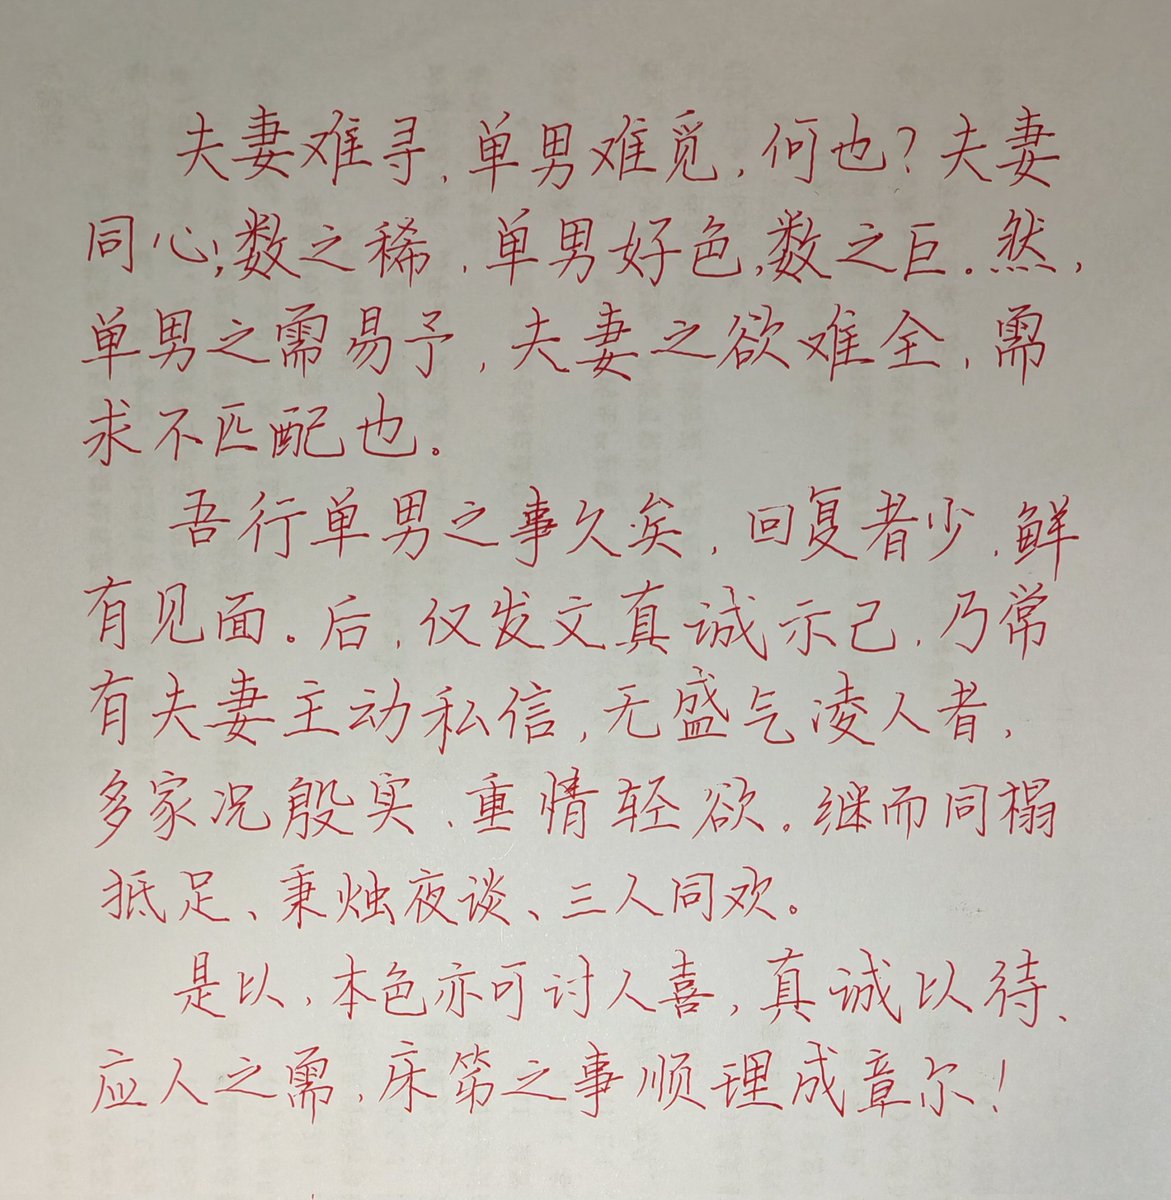 夫妻难寻,单男难觅,何也?夫妻
同心,数之稀,单男好色,数之巨。然,
单男之需易予,夫妻之欲难全,需
求不匹配也。
吾行单男之事久矣,回复者少,鲜
有见面。后,仅发文真诚示己,乃常
有夫妻主动私信,无盛气凌人者,
多家况殷实、重情轻欲。继而同榻
抵足、秉烛夜谈、三人同欢。
是以,本色亦可讨人喜,真诚以待、
应人之需,床笫之事顺理成章尔!